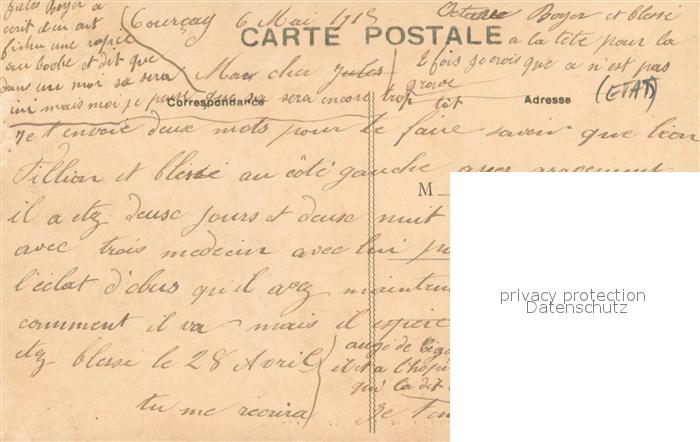 Jules Boyer a
écrit d'un
fichu une
au boche et dit que
dans un moi sa sera
fini mais moi je pense que sa sera encore trop tôt
Courçay 6 Mai 1915
CARTE POSTALE
Octave Boyer et blessé
a la tete pour la
2 fois je crois que ce n'est pas
grave
(ETAT)
Mon cher Jules
Correspondance
Adresse
Je t'envoie deux mots pour te faire savoir que léon
Fillion et blessé au côté gauche assez gravement
il a etez deuse jours et deuse nuit
avec trois medecin avec lui
l'éclat d'obus qu'il avez
comment il va mais il espere
etez blessé le 28 Avril
il et a l'hopi
qui la dit
tu me recrira
M
privacy protection
Datenschutz